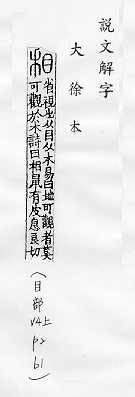 說文解字
大徐本
相
省視也从目从木易曰地可觀者莫
可觀於木詩曰相鼠有皮息良切
(目部 V4上 P2 b1)